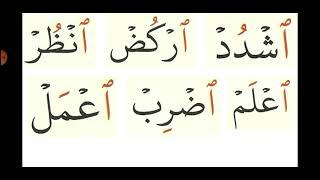 ٱشْدُدْ ٱرْكُضْ ٱنْظُرْ
ٱعْلَمْ ٱضْرِبْ ٱعْمَلْ